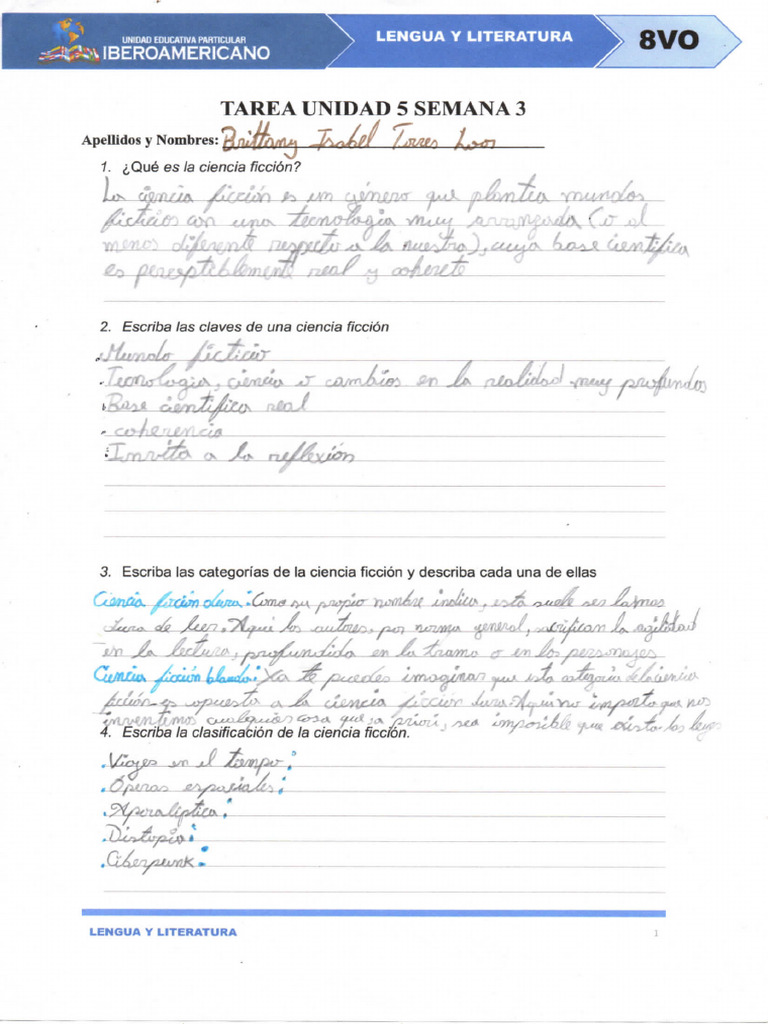 UNIDAD EDUCATIVA PARTICULAR
IBEROAMERICANO
LENGUA Y LITERATURA
8VO
TAREA UNIDAD 5 SEMANA 3
Apellidos y Nombres: Brittany Isabel Torres Loor
1. ¿Qué es la ciencia ficción?
La ciencia ficción es un género que plantea mundos
ficticios con una tecnología muy avanzada (o al
menos diferente respecto a la nuestra), cuya base científica
es percepteblemente real y coherete
2. Escriba las claves de una ciencia ficción
. Mundo ficticio
. Tecnologia, ciencia o cambios en la realidad muy profundos
. Base cientifica real
. coherencia
. Invita a la reflexión
3. Escriba las categorías de la ciencia ficción y describa cada una de ellas
Ciencia ficción dura: Como su propio nombre indica, esta suele ser la mas
dura de leer. Aqui los autores, por norma general, sacrifican la agilidad
en la lectura, profundida en la trama o en los personajes
Ciencia ficción blanda: Ya te puedes imaginar que esta categoria de la ciencia
ficción es opuesta a la ciencia ficción dura. Aqui no importa que nos
inventemos cualquier cosa que, a priori, sea imposible que exista las leyes
4. Escriba la clasificación de la ciencia ficción.
. Viajes en el tiempo:
. Óperas espaciales:
. Apocalíptica:
. Distopia:
. Ciberpunk:
LENGUA Y LITERATURA
1